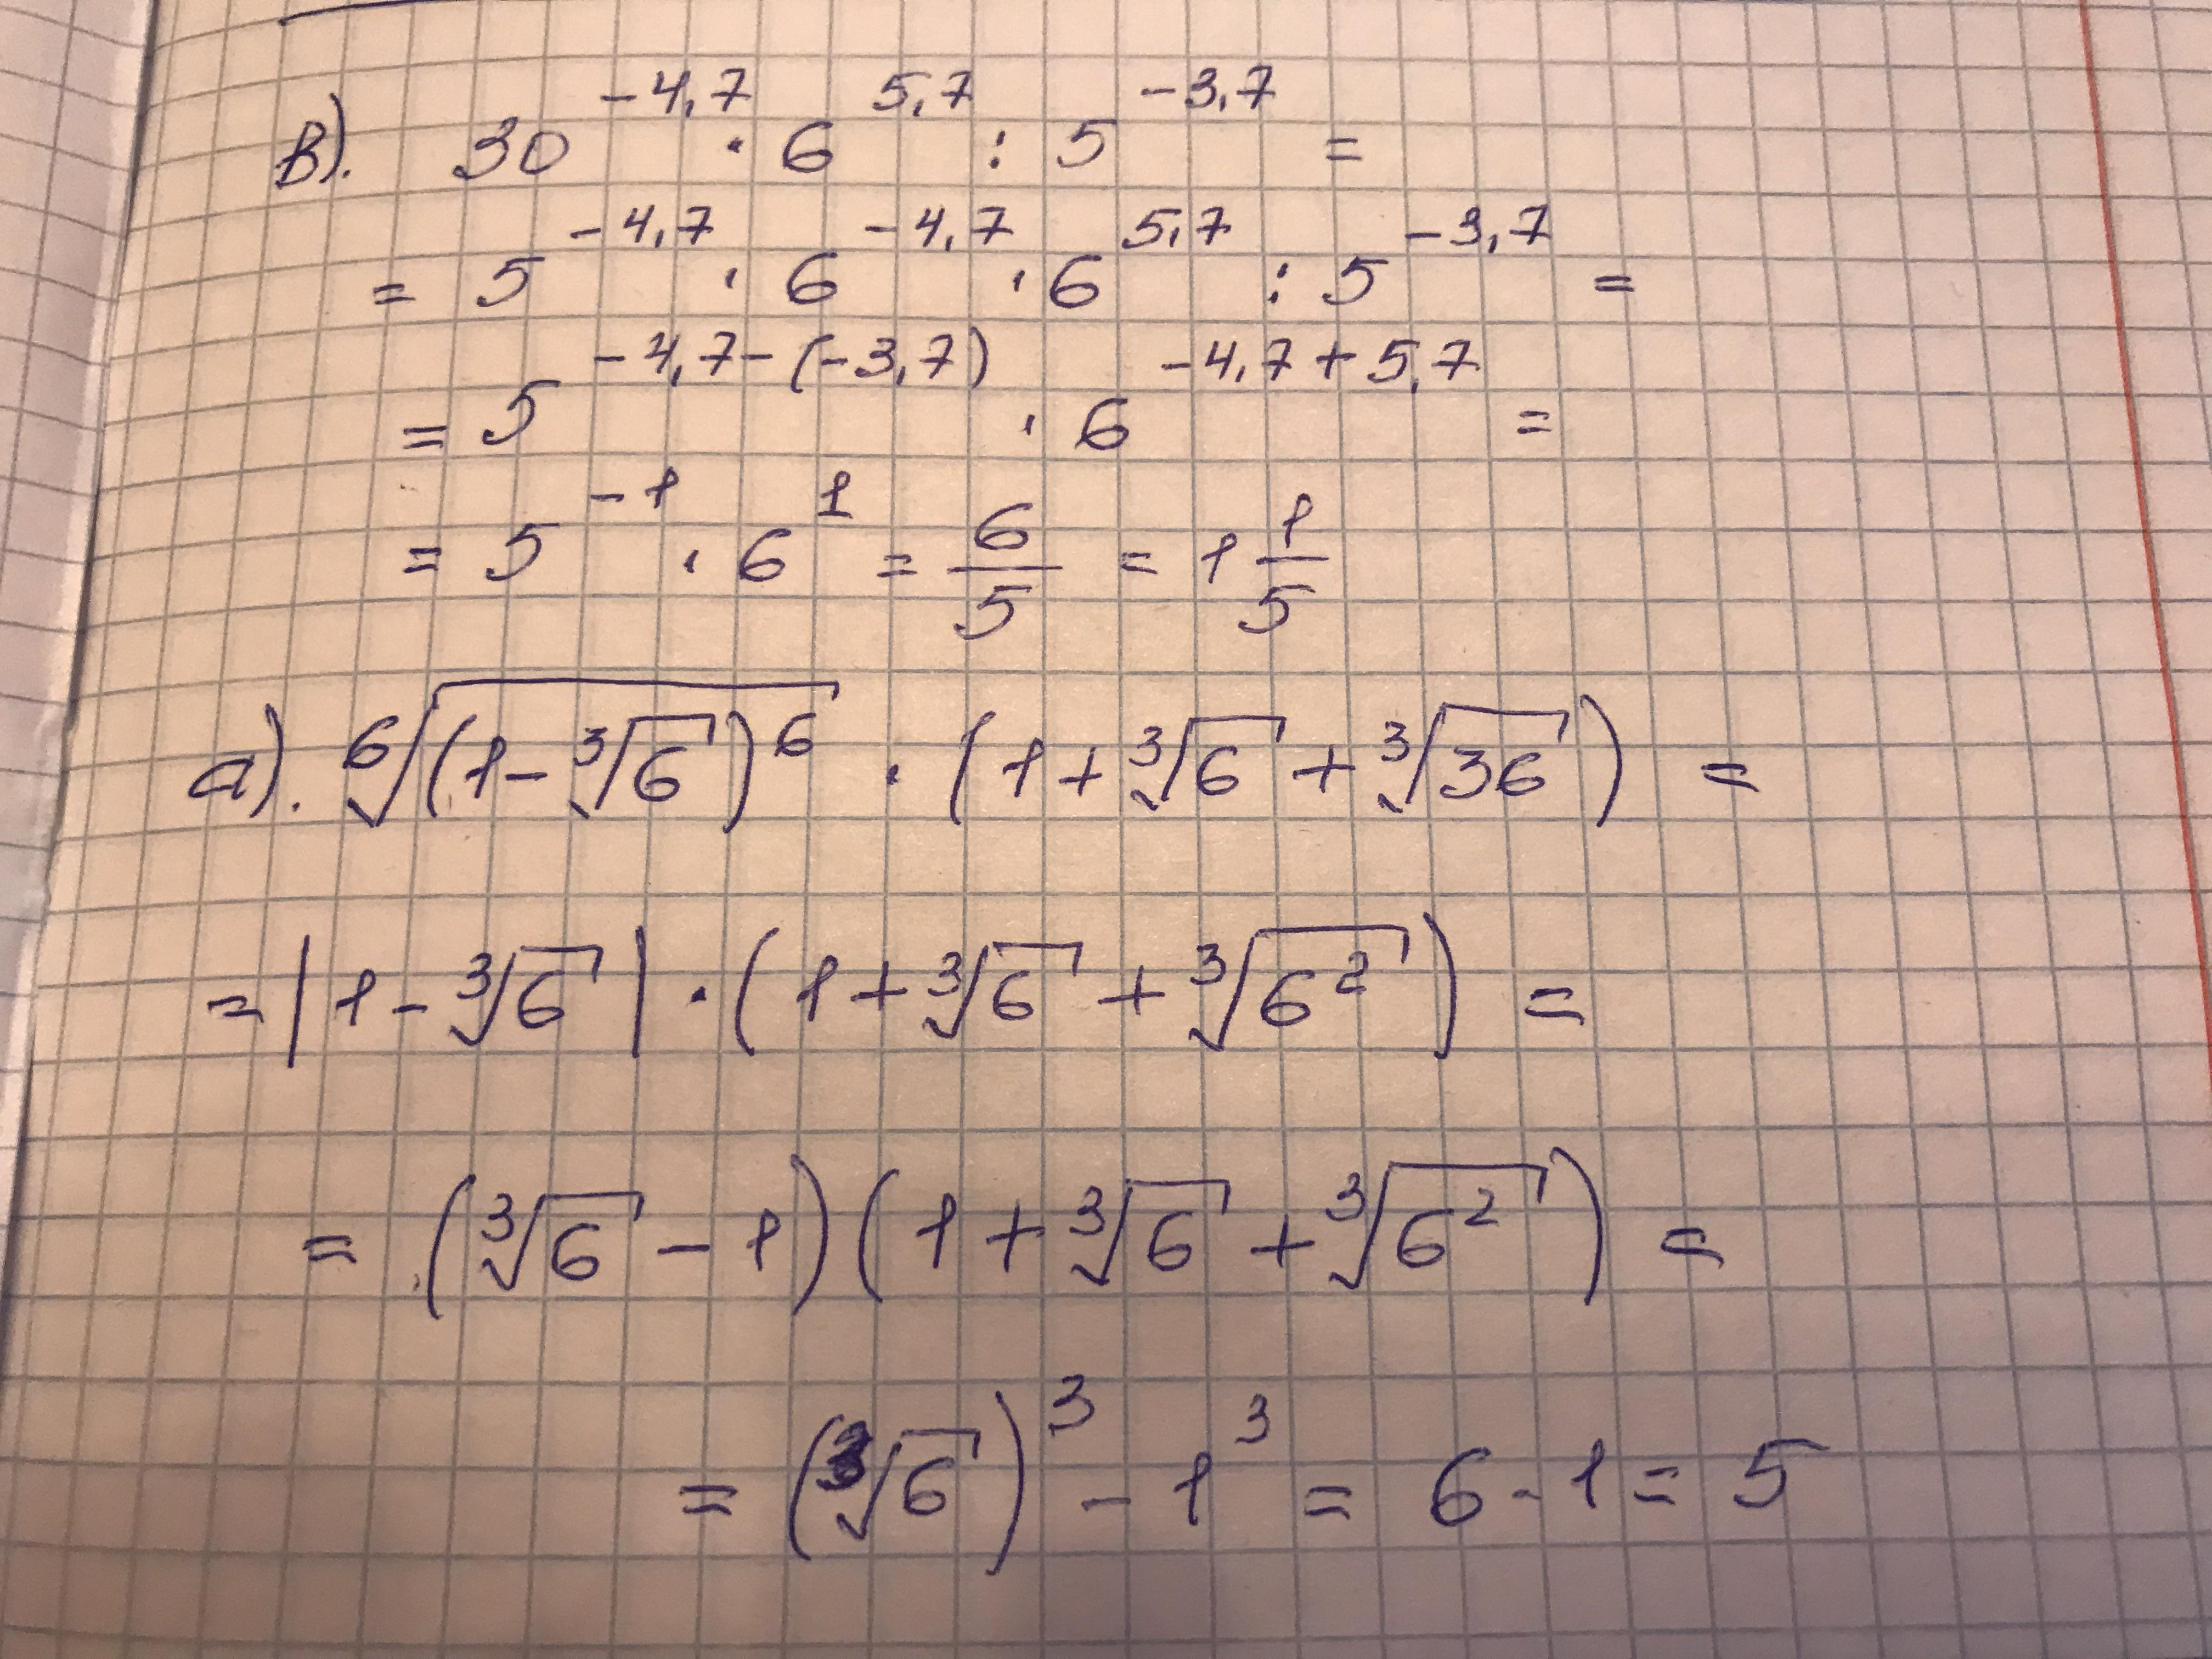 в). 30^{-4,7} · 6^{5,7} : 5^{-3,7} =
= 5^{-4,7} · 6^{-4,7} · 6^{5,7} : 5^{-3,7} =
= 5^{-4,7-(-3,7)} · 6^{-4,7+5,7} =
= 5^{-1} · 6^{1} = \frac{6}{5} = 1\frac{1}{5}
а). \sqrt[6]{(1-\sqrt[3]{6})^6} · (1+\sqrt[3]{6}+\sqrt[3]{36}) =
= |1-\sqrt[3]{6}| · (1+\sqrt[3]{6}+\sqrt[3]{6^2}) =
= (\sqrt[3]{6}-1)(1+\sqrt[3]{6}+\sqrt[3]{6^2}) =
= (\sqrt[3]{6})^3 - 1^3 = 6-1 = 5